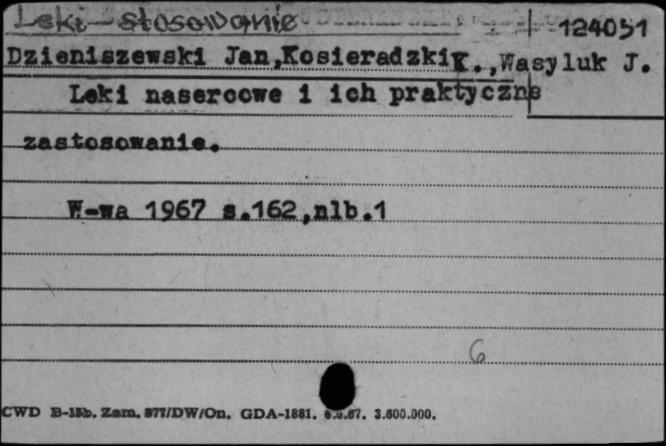 Leki - stosowanie 124051
Dzieniszewski Jan,Kosieradzki K.,Wasyluk J.
Leki nasercowe i ich praktyczne
zastosowanie.
W-wa 1967 s.162,nlb.1
6
CWD B-15b. Zam. 877/DW/On. GDA-1881. 3.600.000.